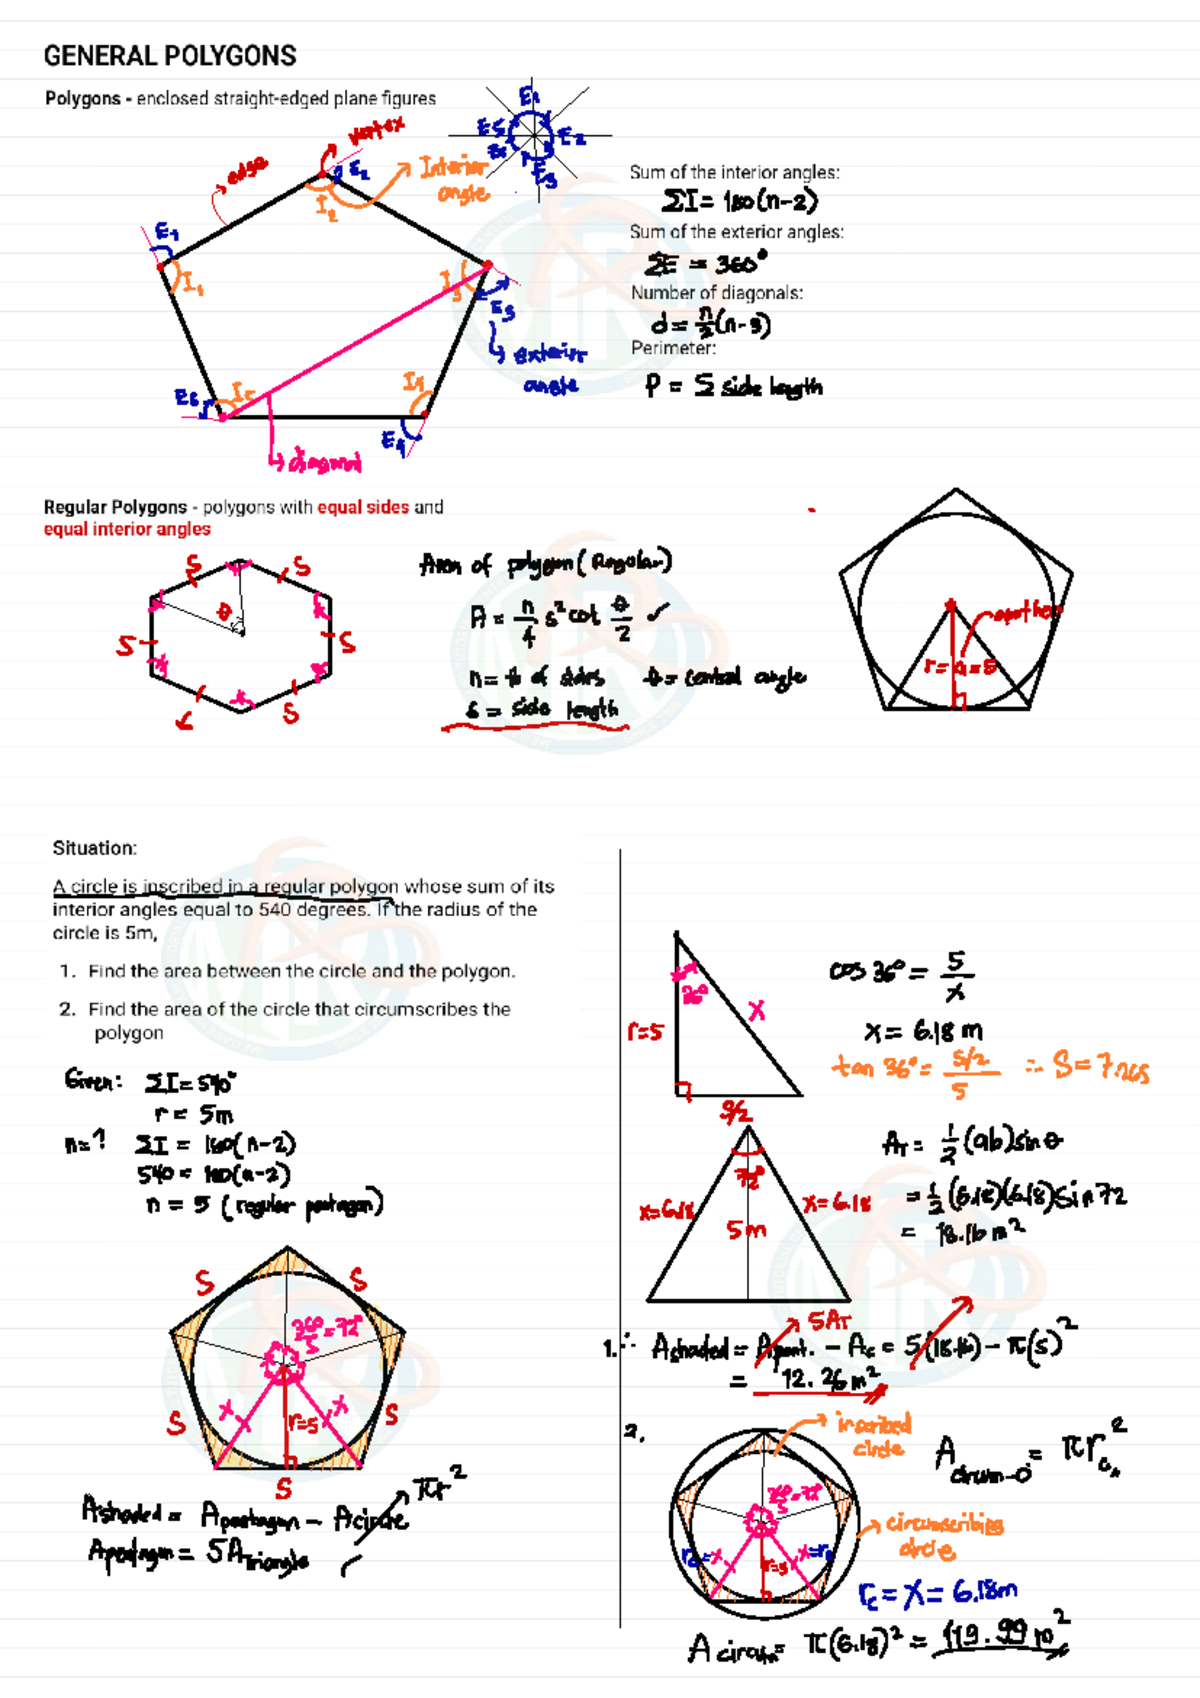 GENERAL POLYGONS
Polygons - enclosed straight-edged plane figures
vertex
edge
Interior
angle
E₁
E₂
E₃
E₅
E₁
E₂
I₁
I₂
I₃
E₃
exterior
angle
I₄
E₄
I₅
E₅
diagonal
Sum of the interior angles:
ΣI = 180(n-2)
Sum of the exterior angles:
ΣE = 360°
Number of diagonals:
d = n/2 (n-3)
Perimeter:
P = Σ side length
Regular Polygons - polygons with equal sides and
equal interior angles
S
S
S
S
S
θ
Area of polygon (Regular)
A = n/4 s² cot θ/2 ✓
n = # of sides θ = central angle
s = side length
apothem
r = a = 5
Situation:
A circle is inscribed in a regular polygon whose sum of its
interior angles equal to 540 degrees. If the radius of the
circle is 5m,
1. Find the area between the circle and the polygon.
2. Find the area of the circle that circumscribes the
polygon
Given: ΣI = 540°
r = 5m
n = ? ΣI = 180(n-2)
540 = 180(n-2)
n = 5 (regular pentagon)
S
S
360/5 = 72°
x
x
r=5
S
S
S
Ashaded = Apentagon - Acircle
πr²
Apentagon = 5ATriangle
36°
x
r=5
S/2
cos 36° = 5/x
x = 6.18 m
tan 36° = S/2 / 5 ∴ S = 7.265
72°
x=6.18
x=6.18
5m
AT = 1/2 (ab) sin θ
= 1/2 (6.18)(6.18) sin 72
= 18.16 m²
5AT
1. ∴ Ashaded = Apent. - Ac = 5(18.16) - π(5)²
= 12.26 m²
2.
inscribed
circle
360/5 = 72°
rc=x
x=rc
r=5
circumscribing
circle
Acircum-O = πrc²
rc = x = 6.18m
Acircum = π(6.18)² = 119.99 m²